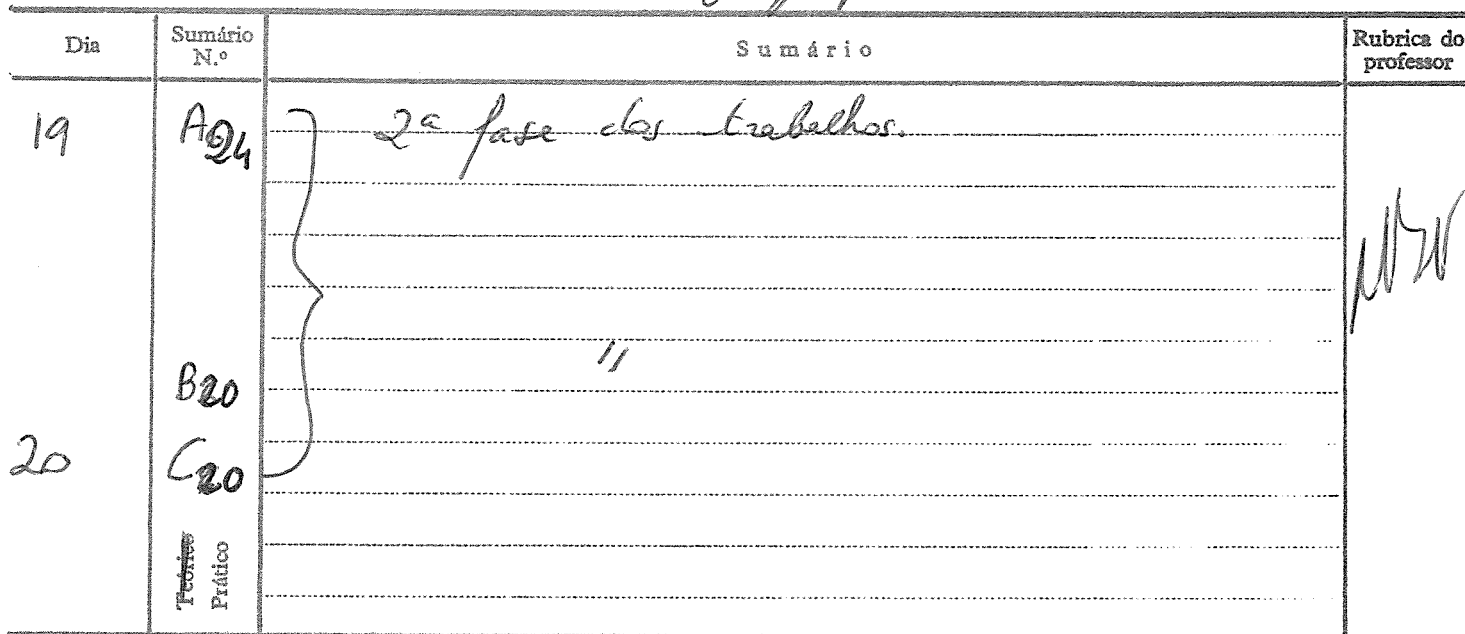 Dia Sumário N.º Sumário Rubrica do professor
19 A24 2ª fase dos trabalhos.
"
B20
20 C20
Teórico
Prático